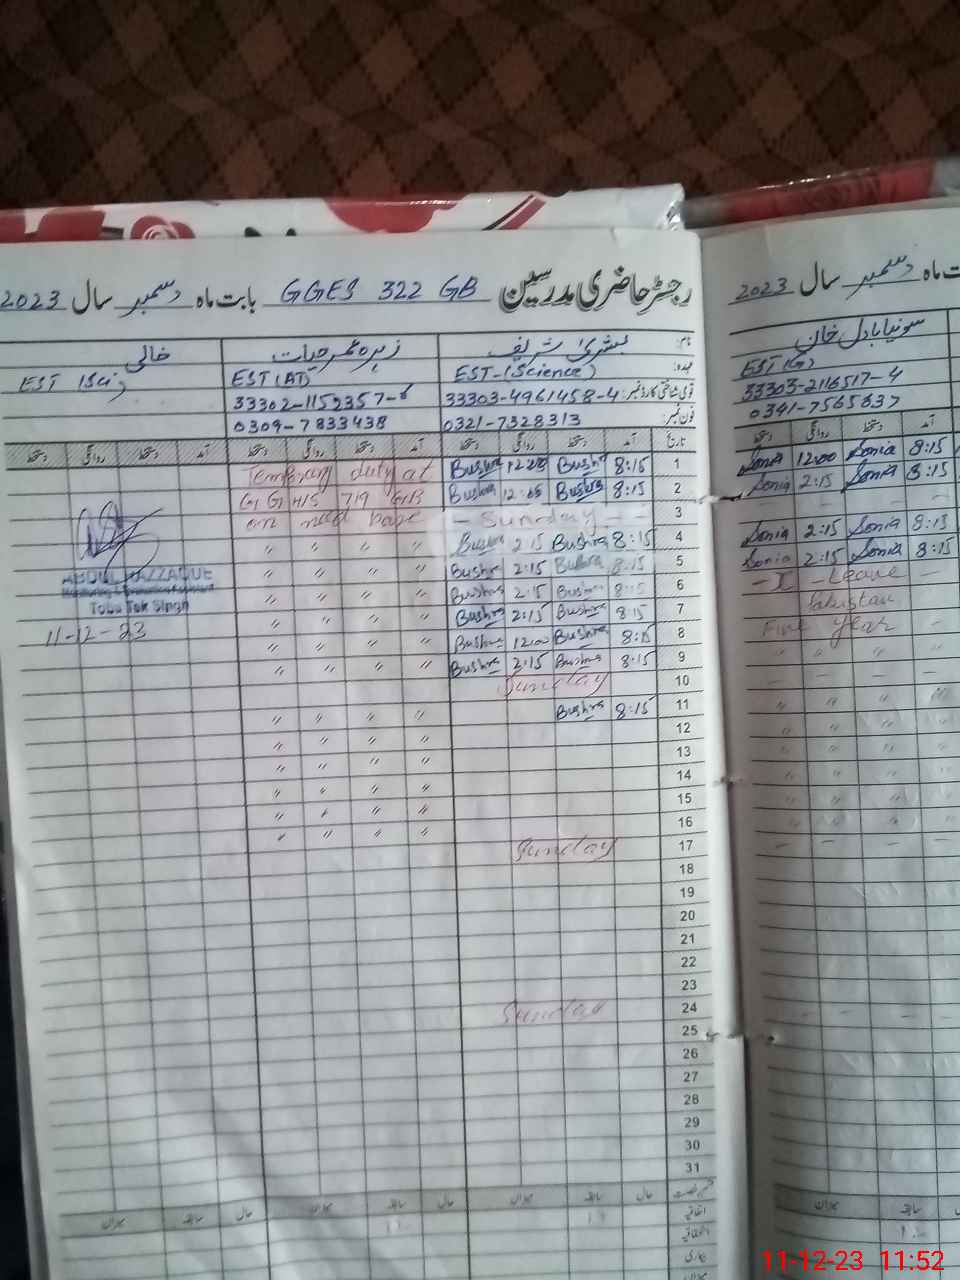 رجسٹر حاضری مدرسین GGES 322 GB بابت ماہ دسمبر سال 2023
نام: بشریٰ شریف زہرہ عمر حیات خالی
عہدہ: EST-(Science) EST (AT) EST (Sci)
قومی شناختی کارڈ نمبر: 33303-4961458-4 33302-1152357-
فون نمبر: 0321-7328313 0309-7833438
تاریخ آمد دستخط روانگی دستخط آمد دستخط روانگی دستخط آمد دستخط روانگی دستخط
1 8:15 Bushra Bushra Temporary duty at
2 8:15 Bushra Bushra 719 GB
3 - Sunday - on need base
4 8:15 Bushra 2:15 Bushra 〃 〃 〃 〃
5 8:15 Bushra 2:15 Bushra 〃 〃 〃 〃
6 8:15 Bushra 2:15 Bushra 〃 〃 〃 〃
7 8:15 Bushra 2:15 Bushra 〃 〃 〃 〃
8 8:15 Bushra 12:00 Bushra 〃 〃 〃 〃
9 8:15 Bushra 2:15 Bushra 〃 〃 〃 〃
10 Sunday
11 8:15 Bushra 〃 〃 〃 〃
12 〃 〃 〃 〃
13 〃 〃 〃 〃
14 〃 〃 〃 〃
15 〃 〃 〃 〃
16 〃 〃 〃 〃
17 Sunday
18
19
20
21
22
23
24 Sunday
25
26
27
28
29
30
31
اتفاقیہ
بیماری
میزان سابقہ حال میزان سابقہ حال میزان سابقہ حال
ABDUL RAZZAQUE
Toba Tek Singh
11-12-23
ماہ دسمبر سال 2023
سونیا بادل خان
EST (G)
33303-2116517-4
0341-7565637
آمد دستخط روانگی دستخط
8:15 Sonia 12:00 Sonia
8:15 Sonia 2:15 Sonia
8:15 Sonia 2:15 Sonia
8:15 Sonia 2:15 Sonia
- Leave -
Pakistan
year -
میزان سابقہ
11-12-23 11:52